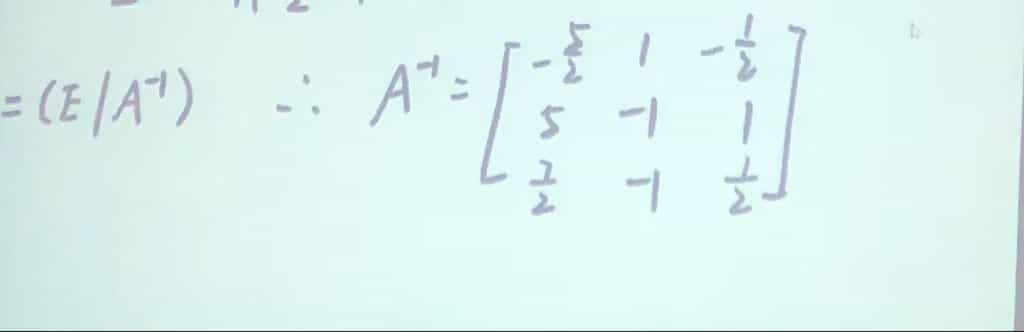 = (E/A⁻¹) ∴ A⁻¹ = [ -5/2 1 -1/2
5 -1 1
7/2 -1 1/2 ]